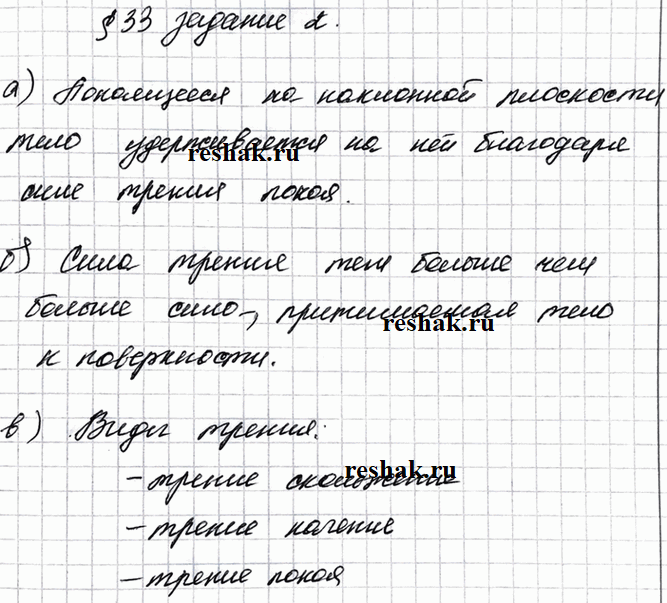 § 33 задание 2.
а) Покоящееся на наклонной плоскости
тело удерживается на ней благодаря
силе трения покоя.
reshak.ru
б) Сила трения тем больше чем
больше сила, прижимаемая тело
reshak.ru
к поверхности.
в) Виды трения:
– трение скольжение
reshak.ru
– трение качение
– трение покоя